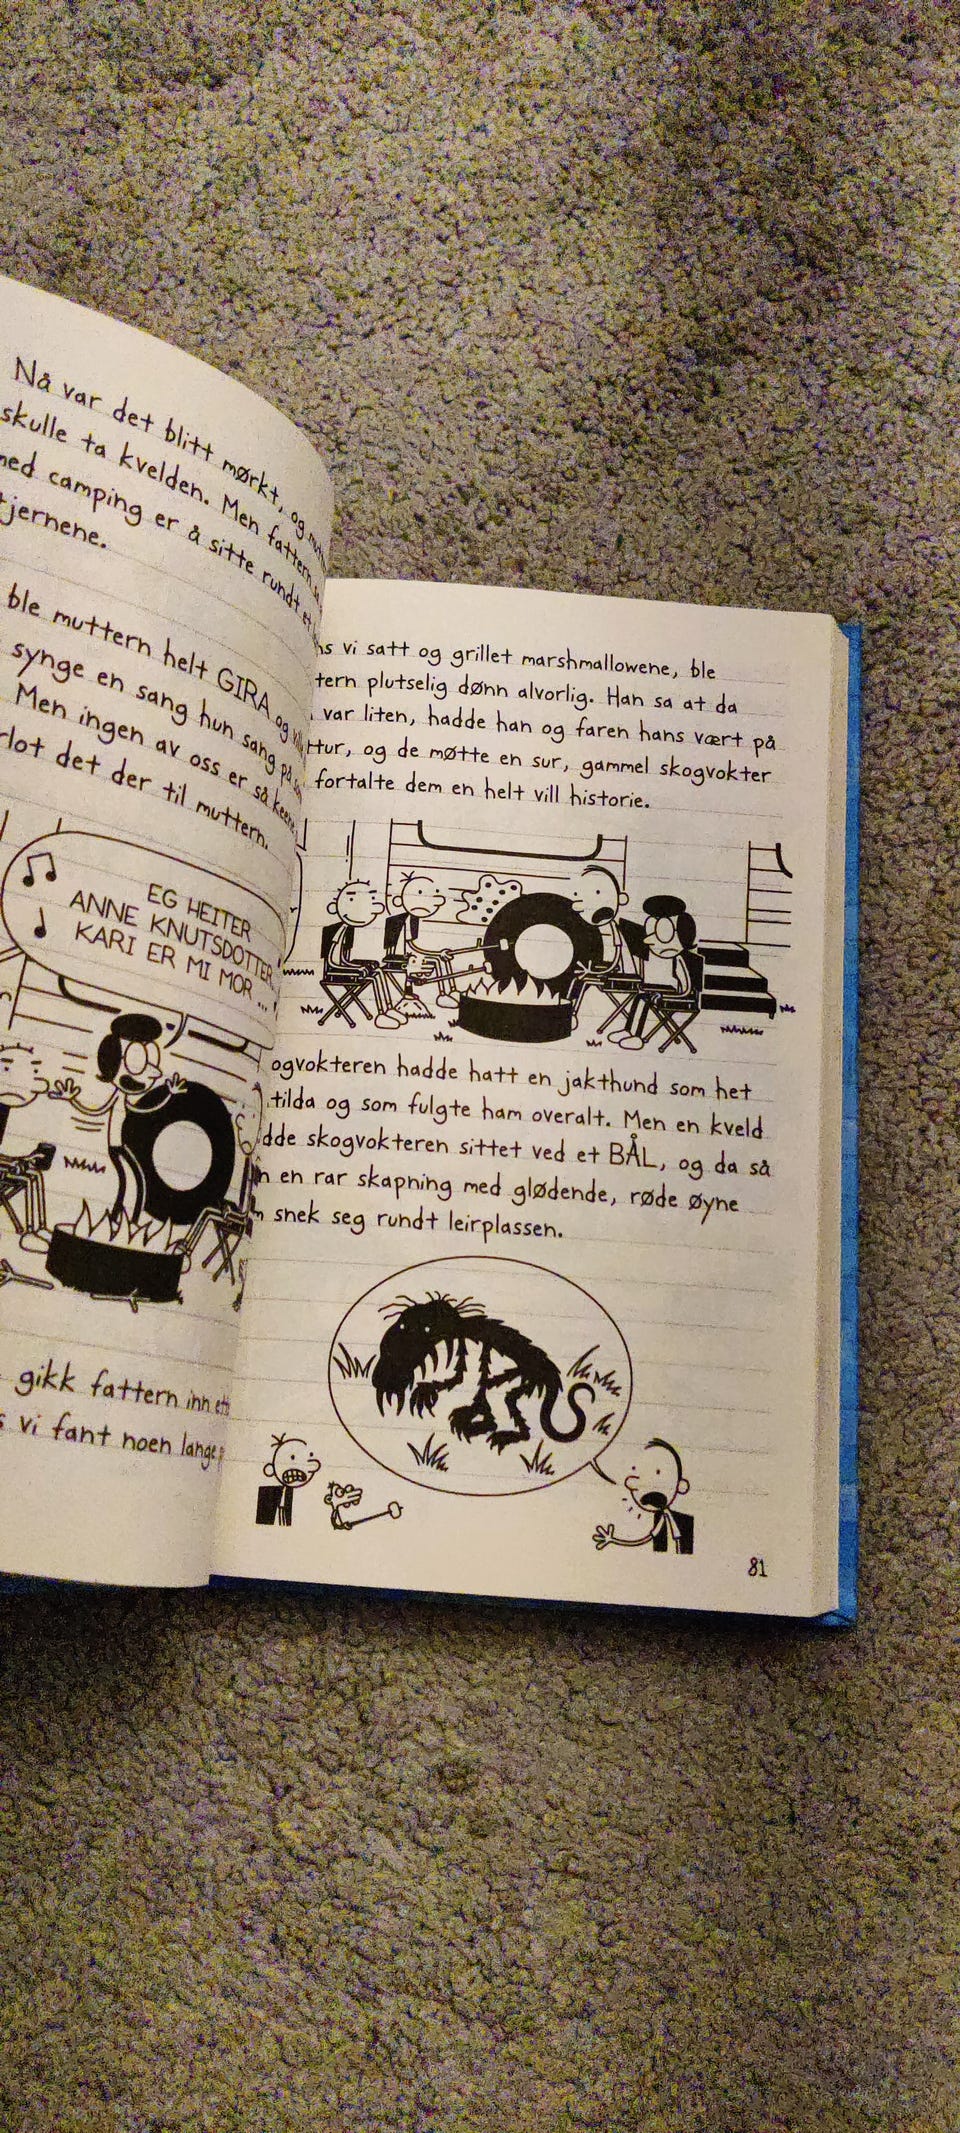 Nå var det blitt mørkt, og
skulle ta kvelden. Men fattern
camping er å sitte rundt et
ble muttern helt GIRA og
synge en sang hun sang på
Men ingen av oss er så keene
det der til muttern.
EG HEITER
ANNE KNUTSDOTTER,
KARI ER MI MOR ...
gikk fattern inn
vi fant noen lange
vi satt og grillet marshmallowene, ble
plutselig dønn alvorlig. Han sa at da
var liten, hadde han og faren hans vært på
og de møtte en sur, gammel skogvokter
fortalte dem en helt vill historie.
hadde hatt en jakthund som het
og som fulgte ham overalt. Men en kveld
skogvokteren sittet ved et BÅL, og da så
en rar skapning med glødende, røde øyne
snek seg rundt leirplassen.
81